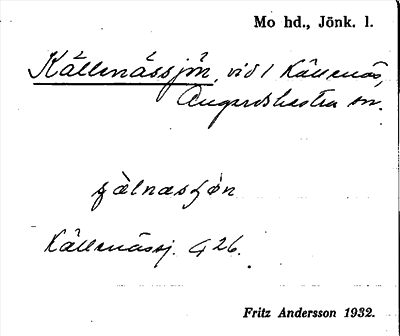 Mo hd., Jönk. l.
Källenässjön, vid Källenäs,
Angerdshestra sn.
Källenässj. G 26.
Fritz Andersson 1932.